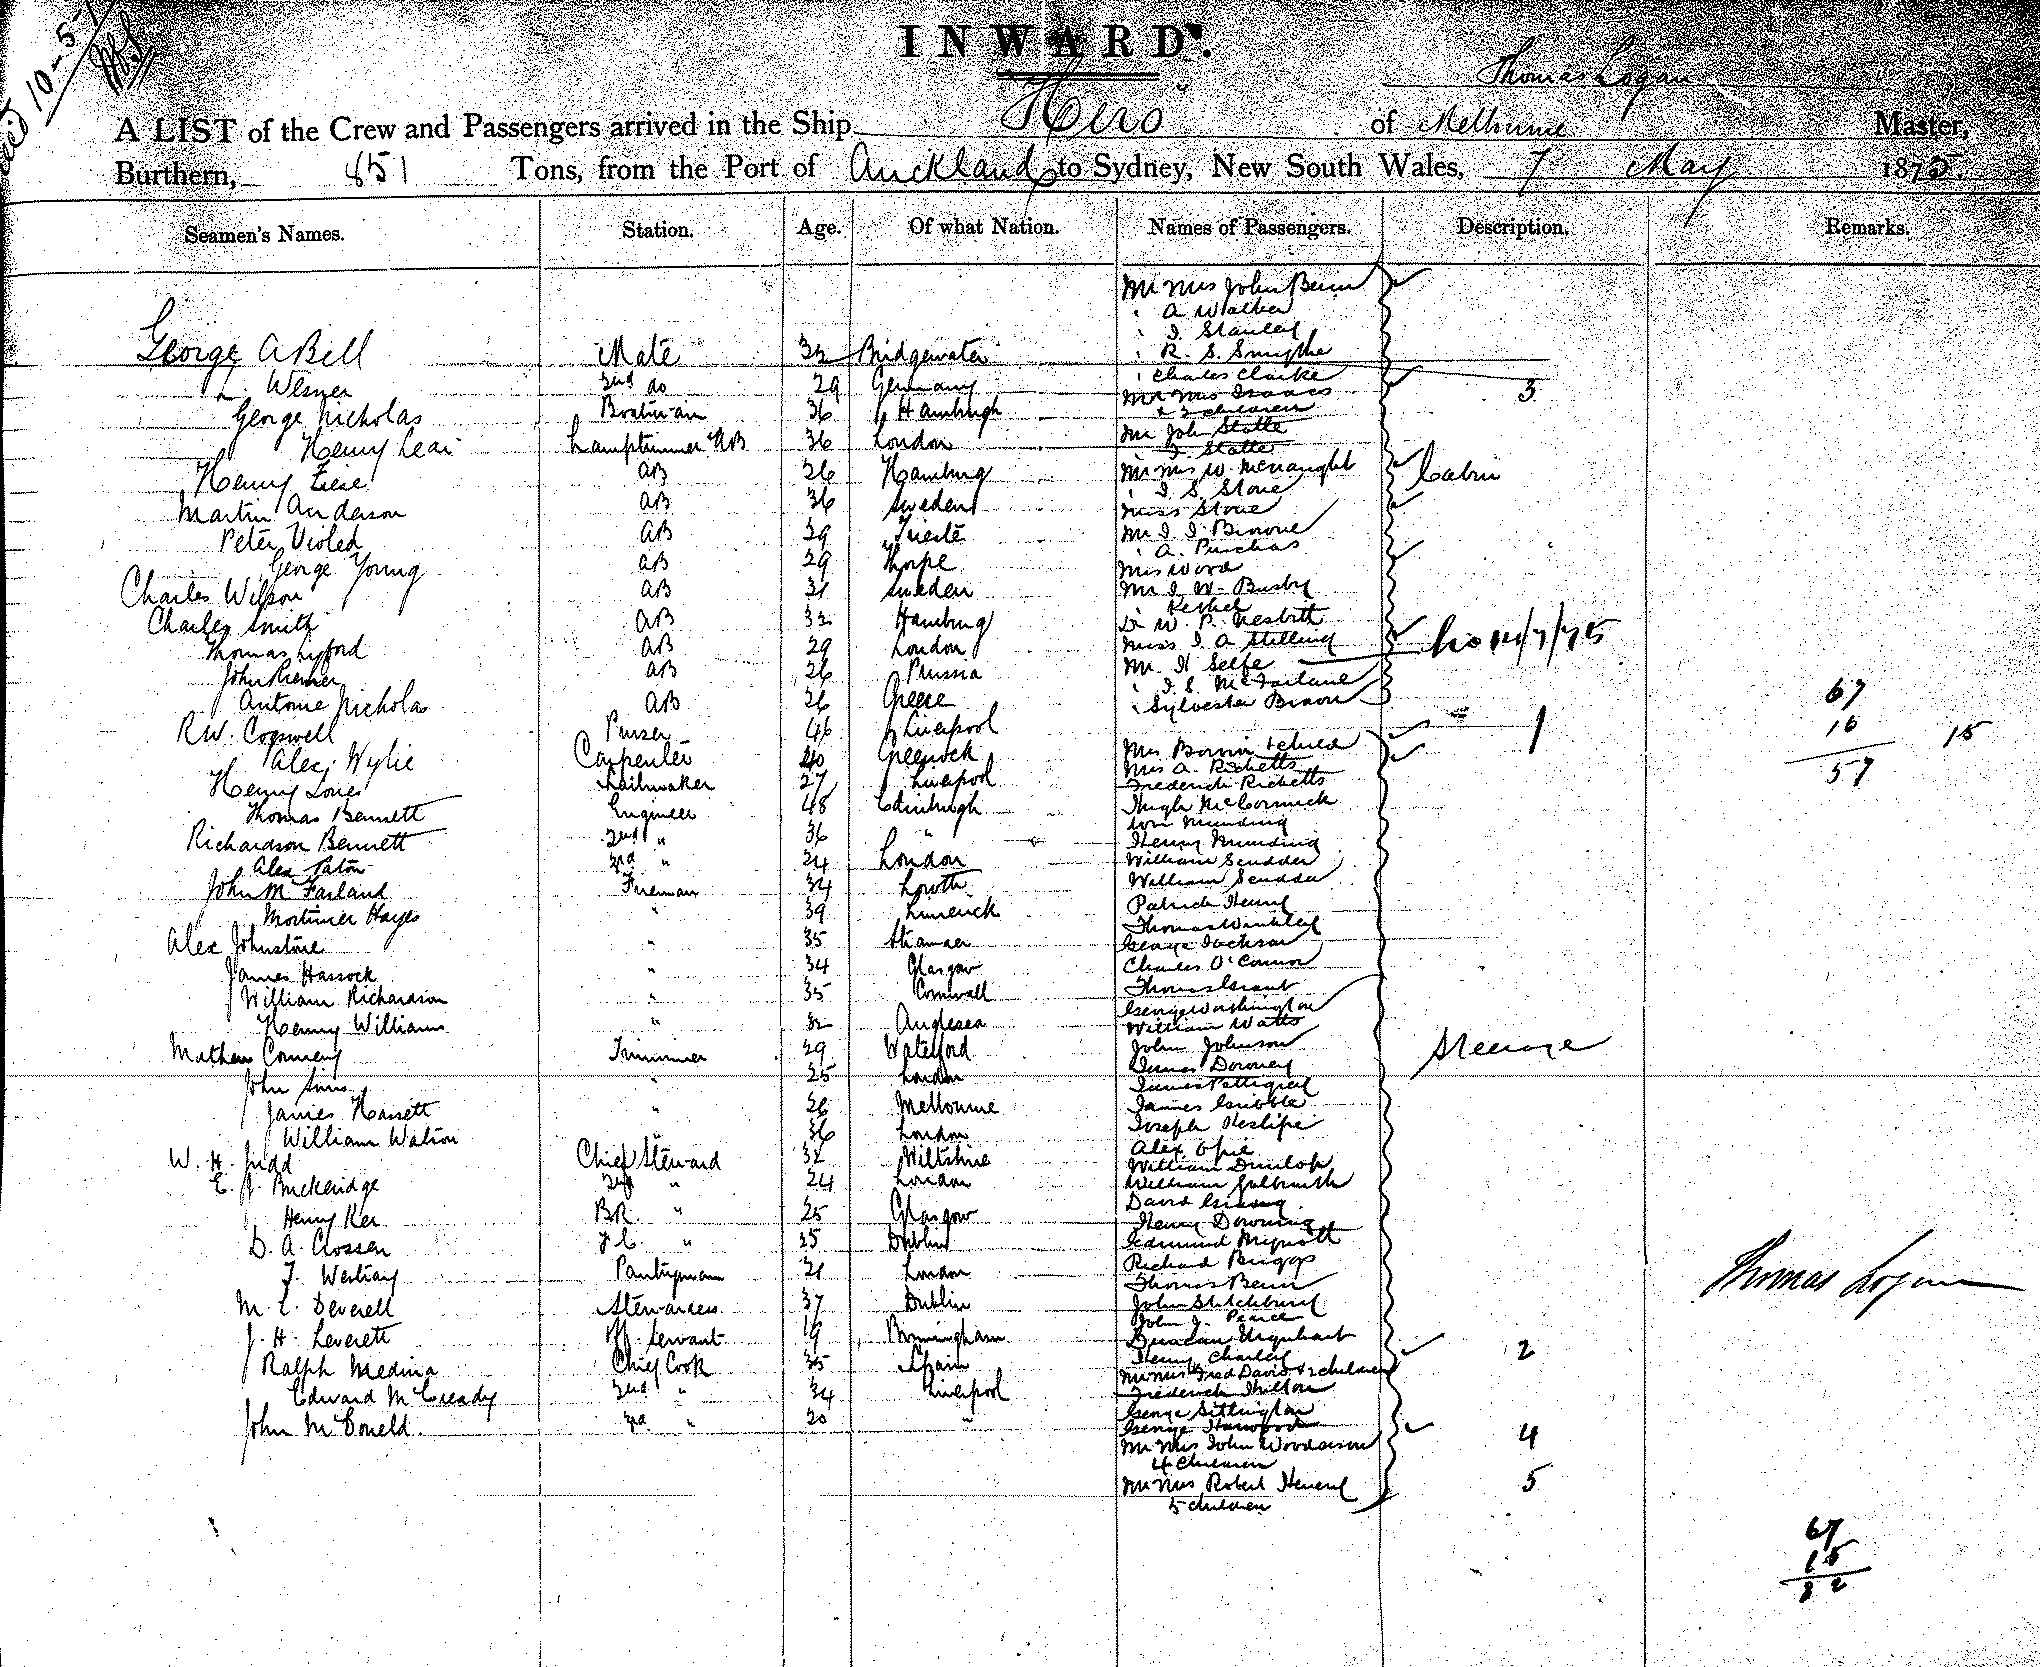 10-5-
INWARD.
Thomas Logan
A LIST of the Crew and Passengers arrived in the Ship Hero of Melbourne Master,
Burthern, 851 Tons, from the Port of Auckland to Sydney, New South Wales, 7 May 1875.
Seamen's Names. Station. Age. Of what Nation. Names of Passengers. Description. Remarks.
Mr Mrs John Benn
" A Walker
" I. Stanley
George A Bell Mate 32 Bridgewater " R. S. Smythe
" Charles Clarke
L. Wesner 2nd do 29 Germany Mr Mrs Isaacs 3
George Nicholas Boatman 36 Hamburgh & 3 children
Mr John Statte
Henry Lear Lamptrimmer AB 36 London I Statte
Henry AB 26 Hamburg Mr Mrs W. McNaught Cabin
" I. S. Stone
Martin Anderson AB 36 Sweden Miss Stone
Peter Violed AB 29 Trieste Mr I. I. Browne
" A. Purchas
George Young AB 29 Thorpe Mrs Wood
Charles Wilson AB 31 Sweden Mr I. W. Busby
Charles Smith AB 32 Hamburg Dr W. P. Nesbitt
Thomas AB 29 London Miss I. A Stilling 14/7/75
John Riemer AB 26 Prussia Mr H Selfe
" I. S. McFarlane
Antonie Nicholas AB 26 Greece " Sylvester Brown 67
R W. Cogswell Purser 46 Liverpool 1 10 15
Alex. Wylie Carpenter 40 Greenock Mrs & child 57
Mrs A. Ricketts
Henry Jones Sailmaker 27 Liverpool Frederick Ricketts
Thomas Bennett Engineer 48 Edinburgh Hugh McCormick
Wm Munding
Richardson Bennett 2nd " 36 " Henry Munding
Alex Paton 3rd " 24 London William Scudder
John McFarland Fireman 34 Louth William Scudder
Mortimer Hayes " 39 Limerick Patrick Henry
Thomas Winkley
Alex Johnstone " 35 Stranraer George Jackson
James Hassock " 34 Glasgow Charles O'Connor
William Richardson " 35 Cornwall Thomas Grant
George Washington
Henry Williams " 32 Anglesea William Watts
Mathew Conneny Trimmer 29 Waterford John Johnson Steerage
John Sims " 25 London James Downey
James Pettigrew
James Hassett " 26 Melbourne James Gribble
William Watson " 36 London Joseph Heslipe
Alex Opie
W. H. Judd Chief Steward 32 Wiltshire William Dunlop
E. J. Buckeridge 2nd " 24 London William Galbraith
Henry Ker BR. " 25 Glasgow David
Henry Downing
D. A. Crossen F C. " 35 Dublin Edmund Mignott
Richard Briggs
J. Westray Pantryman 21 London Thomas Benn
M. E. Deverell Stewardess 37 Dublin John Stitchbury
John J. Pearce
J. H. Leverett Off. Servant 19 Birmingham Duncan Urquhart
Ralph Medina Chief Cook 35 Spain Henry Charley 2
Mr Mrs Fred David & 2 children
Edward McCready 2nd " 34 Liverpool Frederick Hilton
John McDoneld. 3rd " 20 " George Sittington
George Harwood 4
Mr Mrs John Woodason
4 Children
Mr Mrs Robert Henery 5
5 children
Thomas Logan
67
15
82